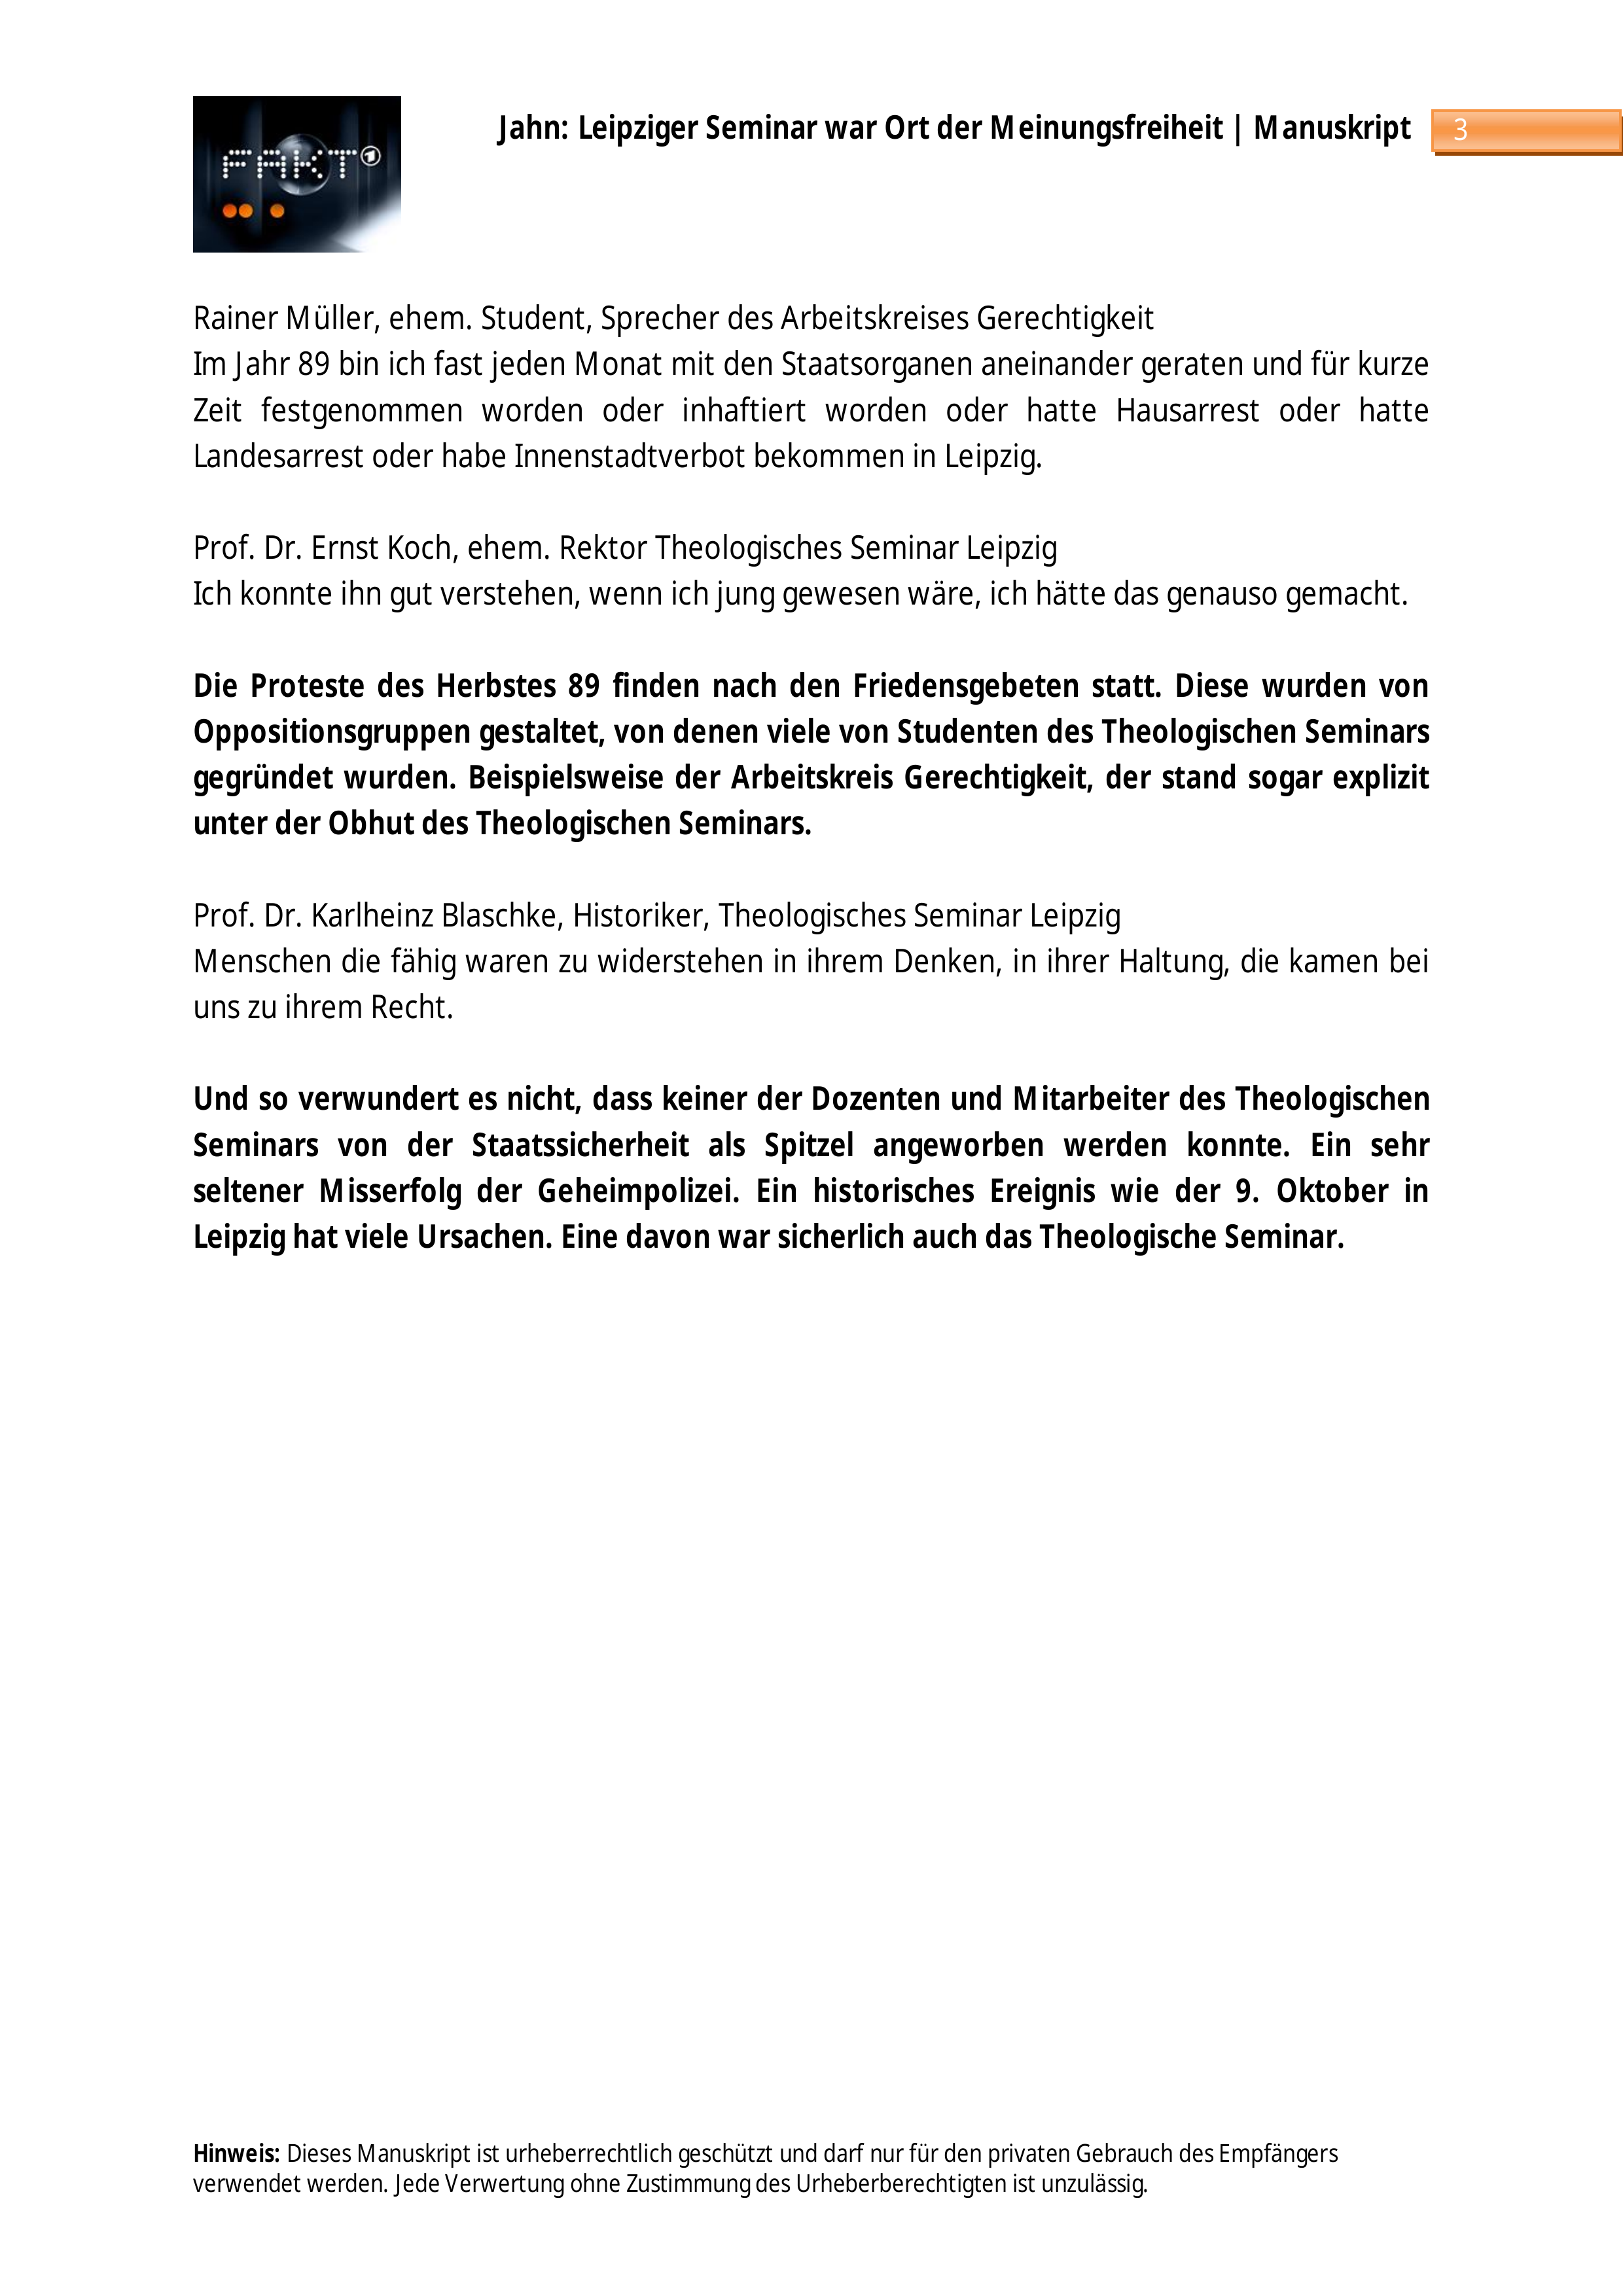 FAKT
Jahn: Leipziger Seminar war Ort der Meinungsfreiheit | Manuskript
3
Rainer Müller, ehem. Student, Sprecher des Arbeitskreises Gerechtigkeit
Im Jahr 89 bin ich fast jeden Monat mit den Staatsorganen aneinander geraten und für kurze
Zeit festgenommen worden oder inhaftiert worden oder hatte Hausarrest oder hatte
Landesarrest oder habe Innenstadtverbot bekommen in Leipzig.
Prof. Dr. Ernst Koch, ehem. Rektor Theologisches Seminar Leipzig
Ich konnte ihn gut verstehen, wenn ich jung gewesen wäre, ich hätte das genauso gemacht.
Die Proteste des Herbstes 89 finden nach den Friedensgebeten statt. Diese wurden von
Oppositionsgruppen gestaltet, von denen viele von Studenten des Theologischen Seminars
gegründet wurden. Beispielsweise der Arbeitskreis Gerechtigkeit, der stand sogar explizit
unter der Obhut des Theologischen Seminars.
Prof. Dr. Karlheinz Blaschke, Historiker, Theologisches Seminar Leipzig
Menschen die fähig waren zu widerstehen in ihrem Denken, in ihrer Haltung, die kamen bei
uns zu ihrem Recht.
Und so verwundert es nicht, dass keiner der Dozenten und Mitarbeiter des Theologischen
Seminars von der Staatssicherheit als Spitzel angeworben werden konnte. Ein sehr
seltener Misserfolg der Geheimpolizei. Ein historisches Ereignis wie der 9. Oktober in
Leipzig hat viele Ursachen. Eine davon war sicherlich auch das Theologische Seminar.
Hinweis: Dieses Manuskript ist urheberrechtlich geschützt und darf nur für den privaten Gebrauch des Empfängers
verwendet werden. Jede Verwertung ohne Zustimmung des Urheberberechtigten ist unzulässig.